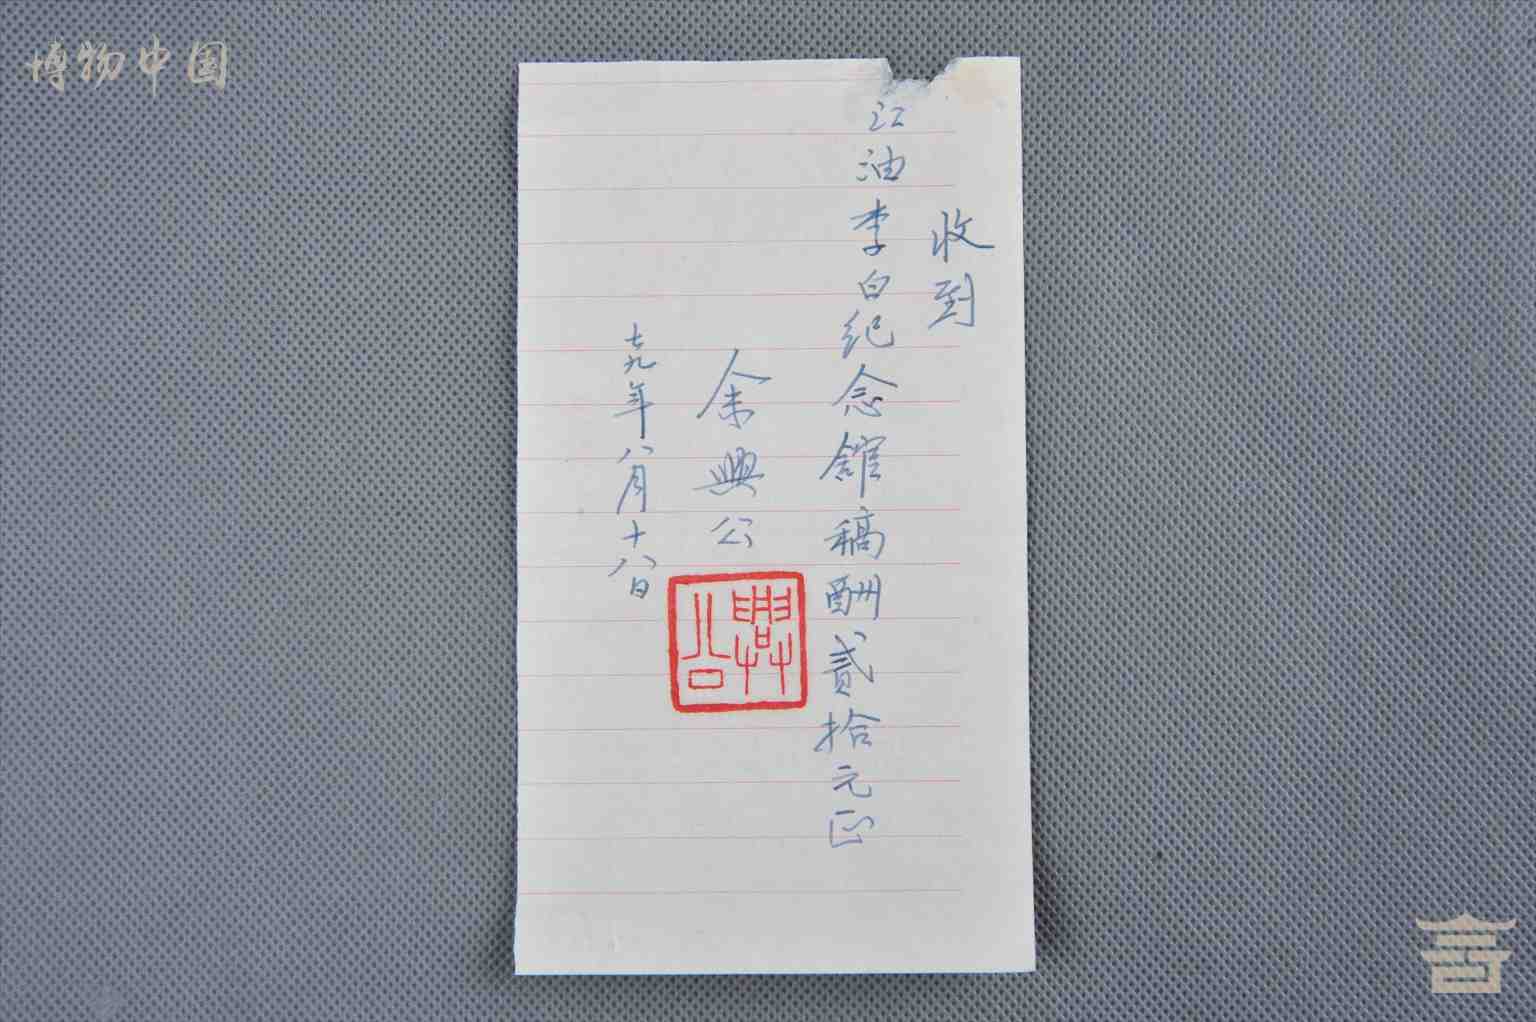 博物中国
收到
江油李白纪念館稿酬贰拾元正
余興公
興公
七九年八月十八日